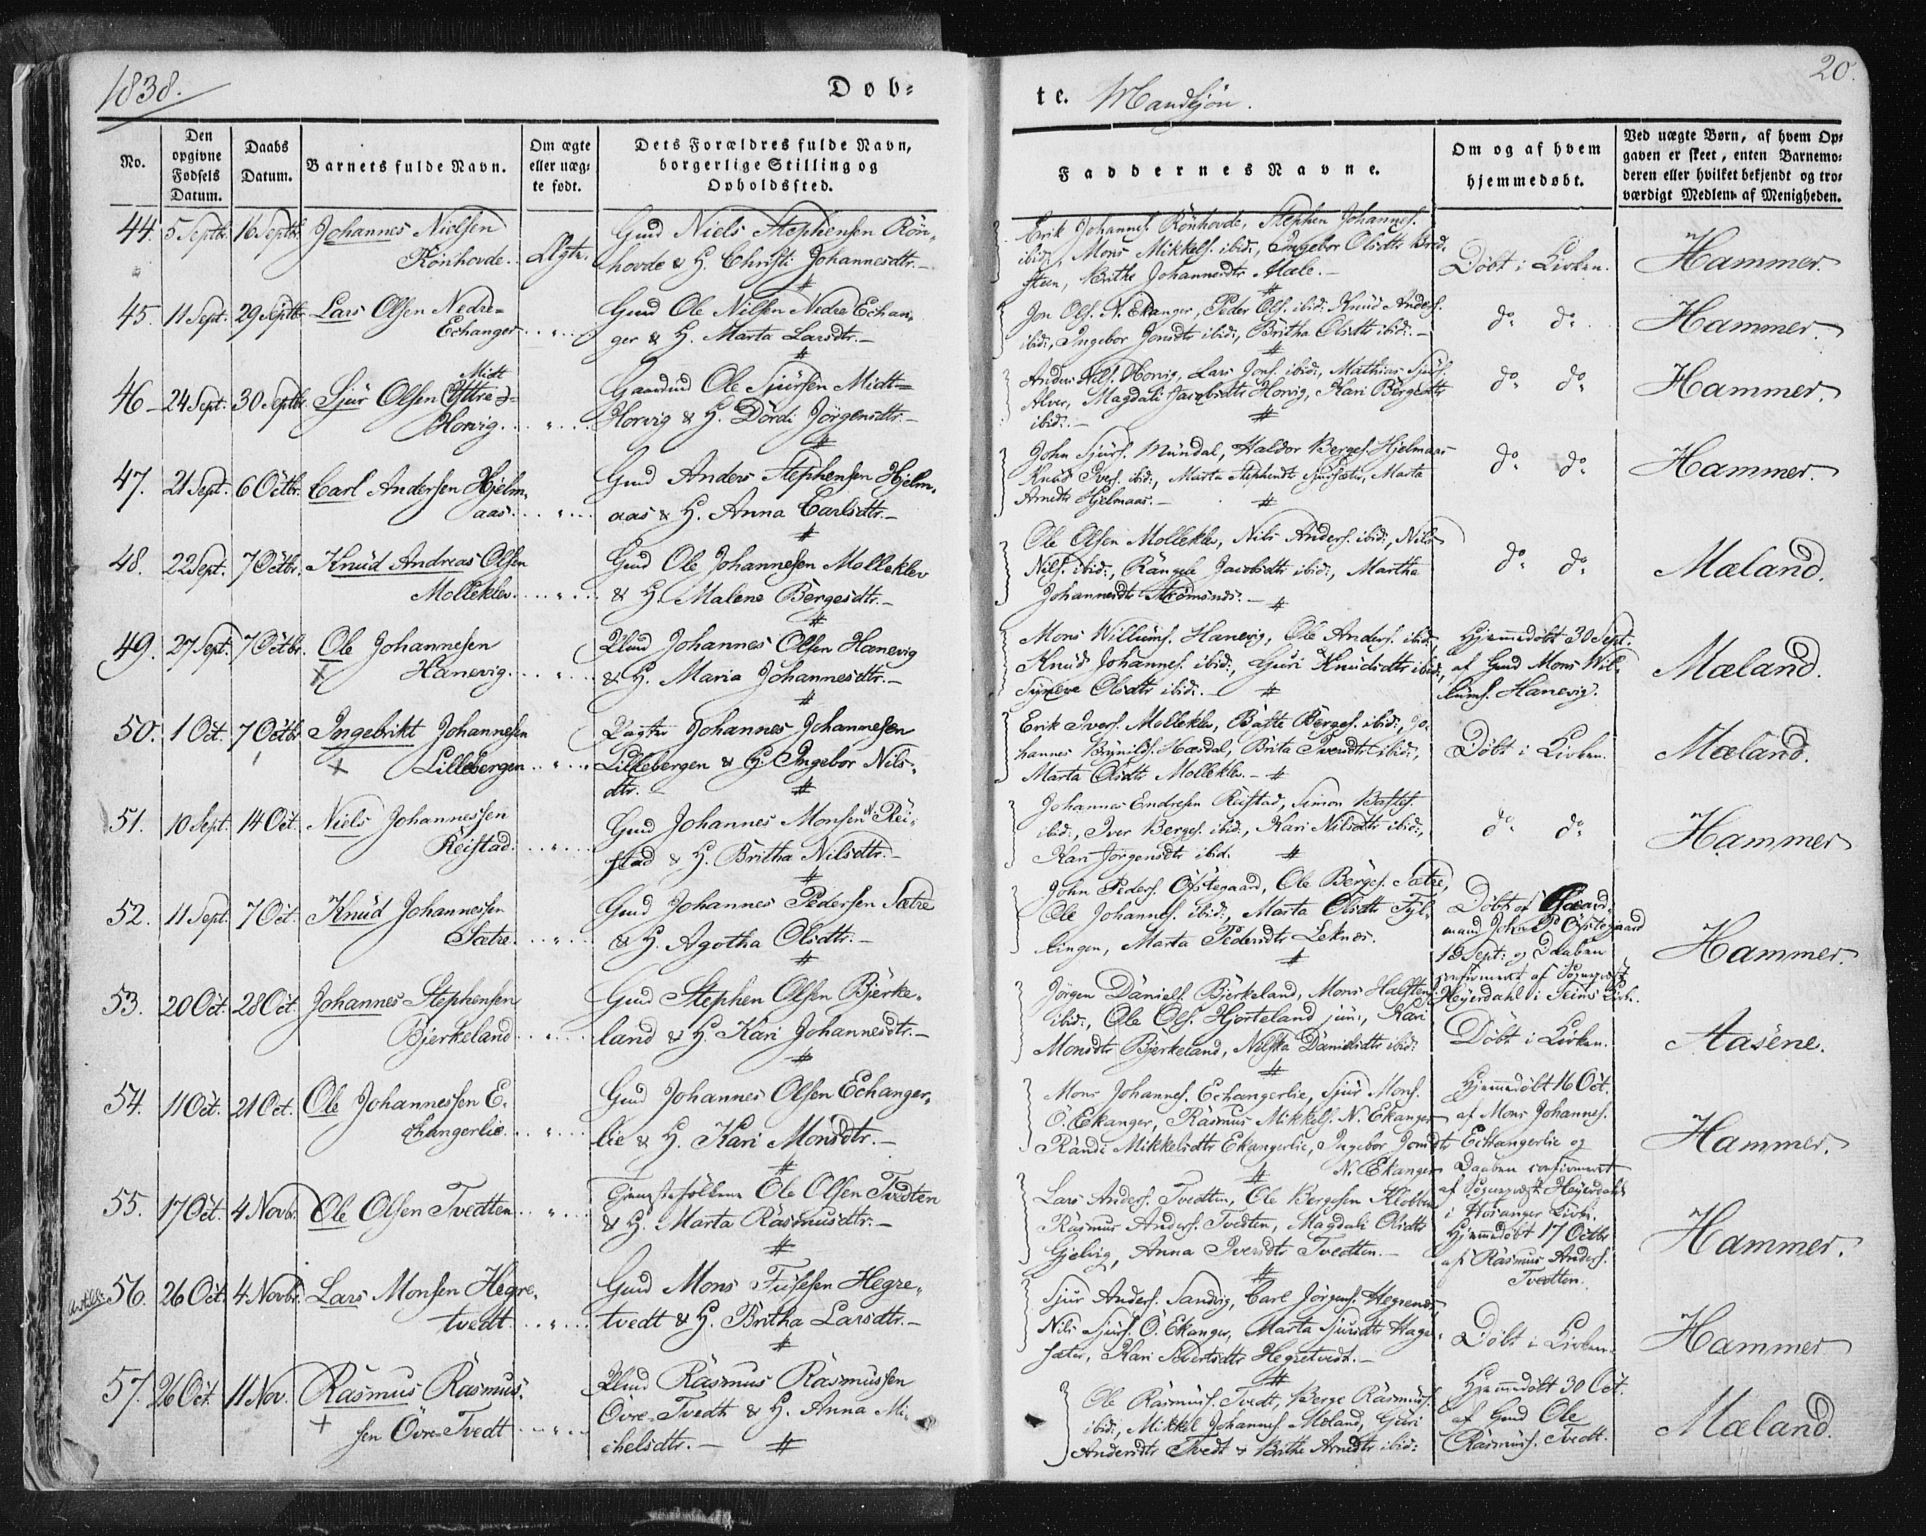 1838.
Døb-
te. Mandkjön.
20.
No.
Den opgivne Fødsels Datum.
Daabs Datum.
Barnets fulde Navn.
Om ægte eller uægte født.
Dets Forældres fulde Navn, borgerlige Stilling og Opholdssted.
Faddernes Navne.
Om og af hvem hjemmedøbt.
Ved uægte Børn, af hvem Opgaven er skeet, enten Barnemoderen eller hvilket bekjendt og troværdigt Medlem af Menigheden.
44. 5 Septbr. 16 Septbr. Johannes Nielsen
Rönhovde. Ægte.
Gmd Niels Stephensen Rön-
hovde & H. Christi Johannesdtr.
Erik Johannes. Rönhovde, Stephen Johannes.
ibid:, Mons Mikkels. ibid:, Ingebor Olsdtr Bred-
steen, Brithe Johannesdtr Mæle.
Döbt i Kirken.
Hammer.
45. 11 Sept. 29 Septbr. Lars Olsen Nedre-
Echanger
Gmd Ole Nilsen Nedre Echan-
ger & H. Marta Larsdtr.
Jon Ols. N. Ekanger, Peder Ols. ibid: Knud Anders.
ibid:, Ingebor Jonsdtr ibid:, Britha Olsdtr ibid:
do do
Hammer.
46 24 Sept. 30 Septbr. Sjur Olsen (Yttre) Midt
Horvig.
Gaardmd Ole Sjursen Midt-
Horvig & H. Dördi Jörgensdtr.
Anders Nils. Horvig, Lars Jons. ibid:, Mathias Sjurs.
Alver, Magdali Jacobsdtr Horvig, Kari Bergesdtr
ibid:
do do
Hammer.
47. 21 Sept. 6 Octbr. Carl Andersen Hjelm-
aas.
Gmd Anders Stephensen Hjelm-
aas & H. Anna Carlsdtr.
John Sjurs. Mundal, Haldor Berges. Hjelmaas
Knud Ivers. ibid:, Marta Stephensdtr Sjursæter, Marta
Arnedtr Hjelmaas.
do do
Hammer.
48. 22 Sept. 7 Octbr. Knud Andreas Olsen
Molleklev.
Gmd Ole Johannesen Molleklev
& H. Malene Bergesdtr.
Ole Olsen Molleklev, Nils Anders. ibid:, Nils
Nils. ibid:, Rangele Jacobsdtr ibid:, Martha
Johannesdtr Strömsnes.
do do
Mæland.
49. 27 Sept. 7 Octbr. Ole Johannesen
Hanevig.
Johannes Olsen Hanevig
& H. Maria Johannesdtr.
Mons Willums. Hanevig, Ole Anders. ibid:,
Knud Johannes. ibid:, Guri Knudsdtr ibid:,
Syneve Olsdtr ibid:
Hjemmedöbt 30 Sept.
af Gmd Mons Wil-
lums. Hanevig.
Mæland.
50. 1 Oct. 7 Octbr. Ingebrikt Johannesen
Lillebergen
Johannes Johannesen
Lillebergen & H. Ingebor Nils-
dtr.
Erik Ivers. Molleklev, Baste Berges. ibid:, Jo-
hannes Brynilds. Hæsdal, Brita Iversdtr ibid:,
Marta Olsdtr Molleklev.
Döbt i Kirken.
Mæland.
51. 10 Sept. 14 Oct. Niels Johannessen
Reistad.
Gmd Johannes Monsen N. Rei-
stad & H. Britha Nilsdtr.
Johannes Endresen Reistad, Simon Bastes.
ibid:, Iver Berges. ibid:, Kari Nilsdtr ibid:,
Kari Jörgensdtr ibid.
do do
Hammer
52. 11 Sept. 7 Oct. Knud Johannessen
Sætre.
Gmd Johannes Pedersen Sætre
& H. Agotha Olsdtr.
John Peders. Ostegaard, Ole Berges. Sætre,
Ole Johannes. ibid:, Marta Olsdtr Fyl-
lingen, Marta Pedersdtr Leknes.
Döbt af Gaard-
mand John P. Ostegaard
Sept: og Daaben
confirmeret af Sogneprest
Heyerdahl i Seims Kirk.
Hammer.
53. 20 Oct. 28 Oct. Johannes Stephensen
Bjerkeland
Gmd Stephen Olsen Bjerke-
land & H. Kari Johannesdtr.
Jörgen Daniels. Bjerkeland, Mons Halsten.
ibid:, Ole Ols. Hjorteland jun:, Kari
Monsdtr Bjerkeland, Nilska Danielsdtr ibid:
Döbt i Kirken.
Aasene.
54. 11 Oct. 21 Oct. Ole Johannessen E-
changerlie.
Gmd Johannes Olsen Echanger-
lie & H. Kari Monsdtr.
Mons Johannes. Echangerlie, Sjur Mons.
Ö. Ekanger, Rasmus Mikkels. N. Ekanger
Randi Mikkelsdtr Ekangerlie, Ingebor Jonsdtr
N. Ekanger
Hjemmedöbt 16 Oct.
af Mons Johannes.
Echangerlie og
Daaben confirmeret
af Sogneprest Heyerdahl
i Hosanger Kirke.
Hammer.
55. 17 Oct. 4 Novbr. Ole Olsen Tvedten
Ole Olsen Tvedten
& H. Marta Rasmusdtr.
Lars Anders. Tvedten, Ole Bergesen Klobben
Rasmus Anders. Tvedten, Magdali Olsdtr
Gjelvig, Anna Iversdtr Tvedten.
Hjemmedöbt 17 Octbr
af Rasmus Anders.
Tvedten.
Hammer.
56. 26 Oct. 4 Novbr. Lars Monsen Hegre-
tvedt
Gmd Mons Fusesen Hegre-
tvedt & H. Britha Larsdtr.
Sjur Anders. Sandvig, Carl Jörgens. Hegrenes,
Nils Sjurs. O. Ekanger, Marta Sjursdtr Hage-
sæter, Kari Sivertsdtr Hegretvedt.
Döbt i Kirken.
Hammer
57. 26 Oct. 11 Nov. Rasmus Rasmus-
sen Övre-Tvedt
Rasmus Rasmussen
Ovre-Tvedt & H. Anna Mi-
chelsdtr.
Ole Rasmus. Tvedt, Berge Rasmus.
ibid:, Mikkel Johannes. Mæland, Guri
Andersdtr Tvedt & Brithe Arnedtr ibid:
Hjemmedöbt 30 Oct.
af Gmd Ole
Rasmus. Tvedt.
Mæland.